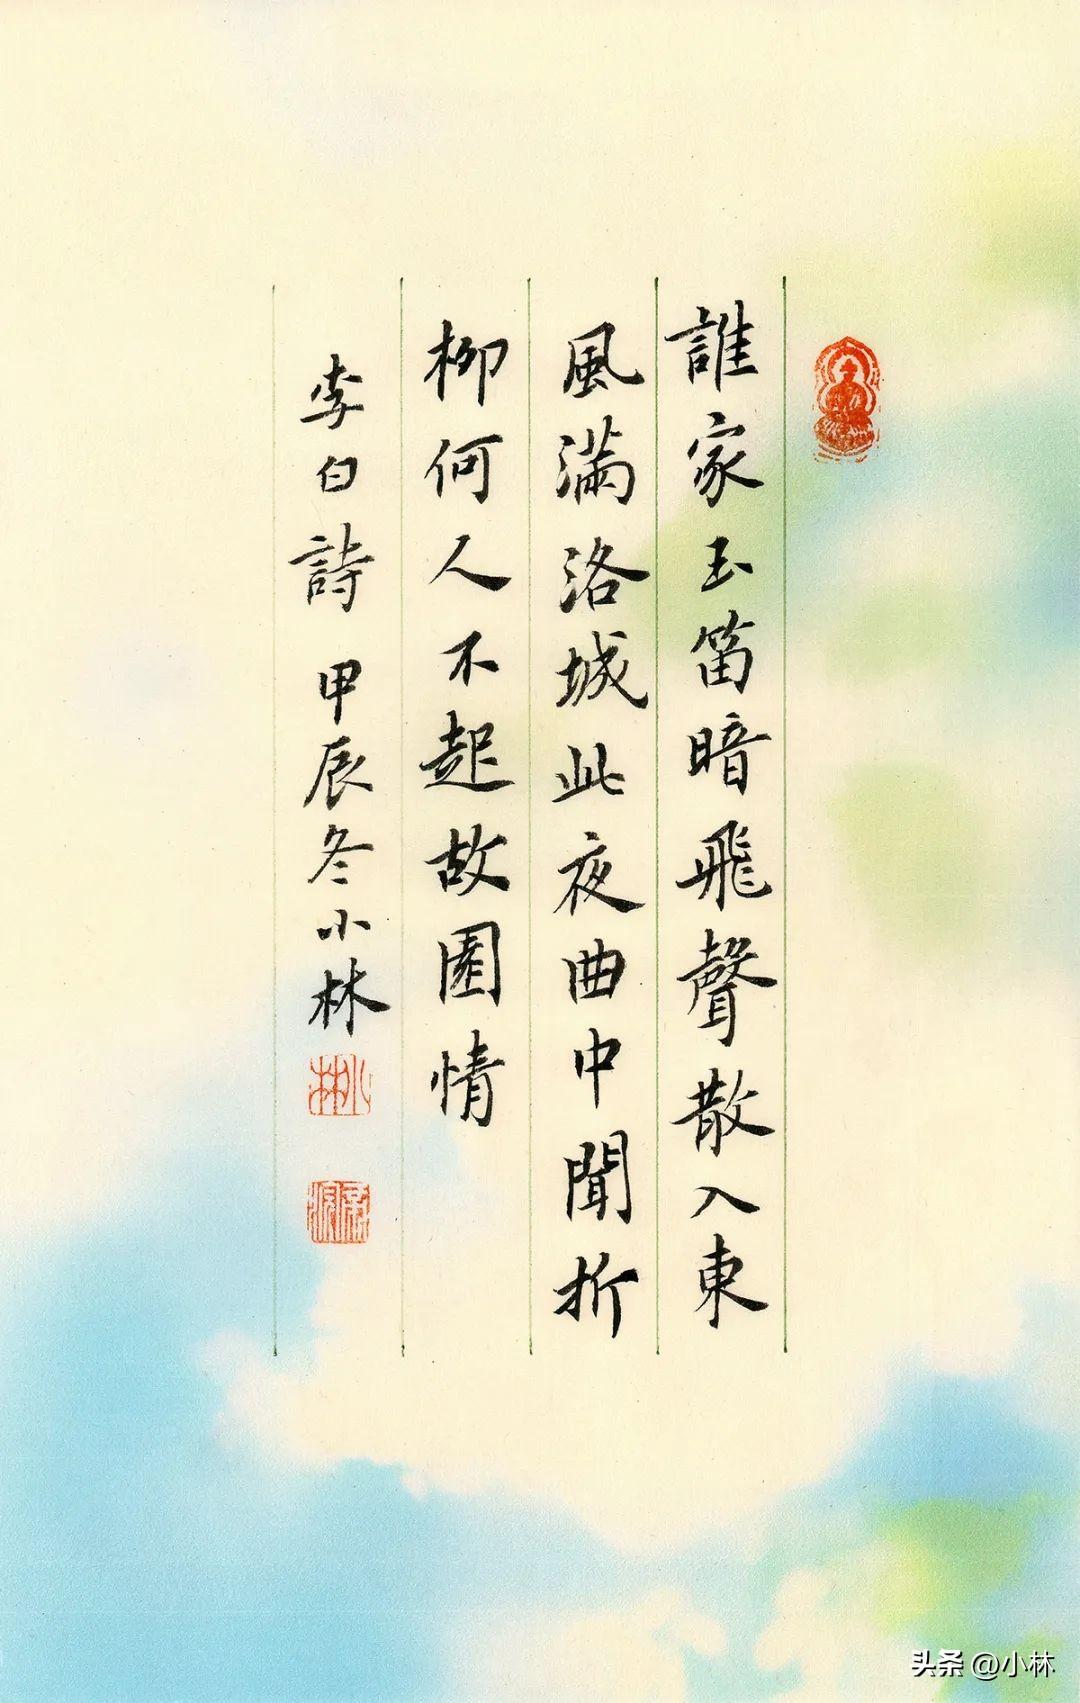 誰家玉笛暗飛聲散入東
風滿洛城此夜曲中聞折
柳何人不起故園情
李白詩 甲辰冬小林
小林
头条 @小林